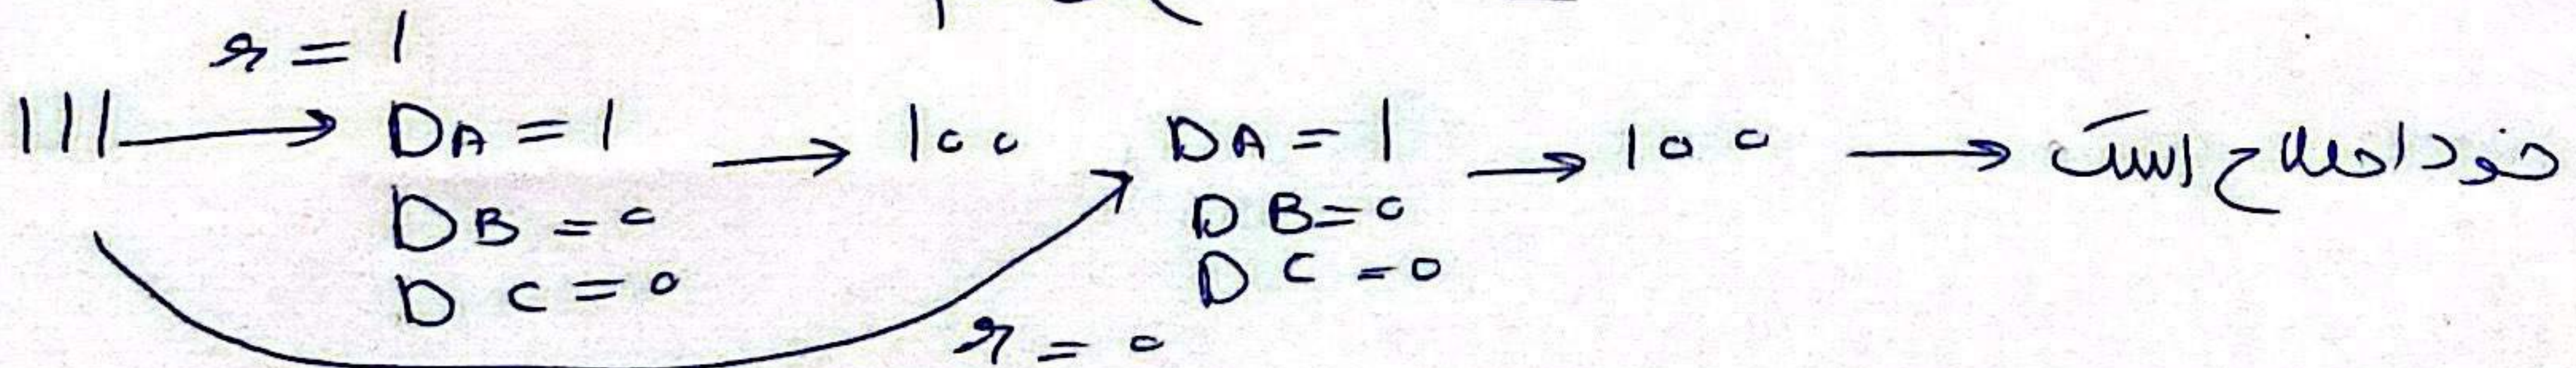 x = 1
111 → DA = 1 → 100 DA = 1 → 100 → خود اصلاح است
DB = 0 DB = 0
DC = 0 DC = 0
x = 0